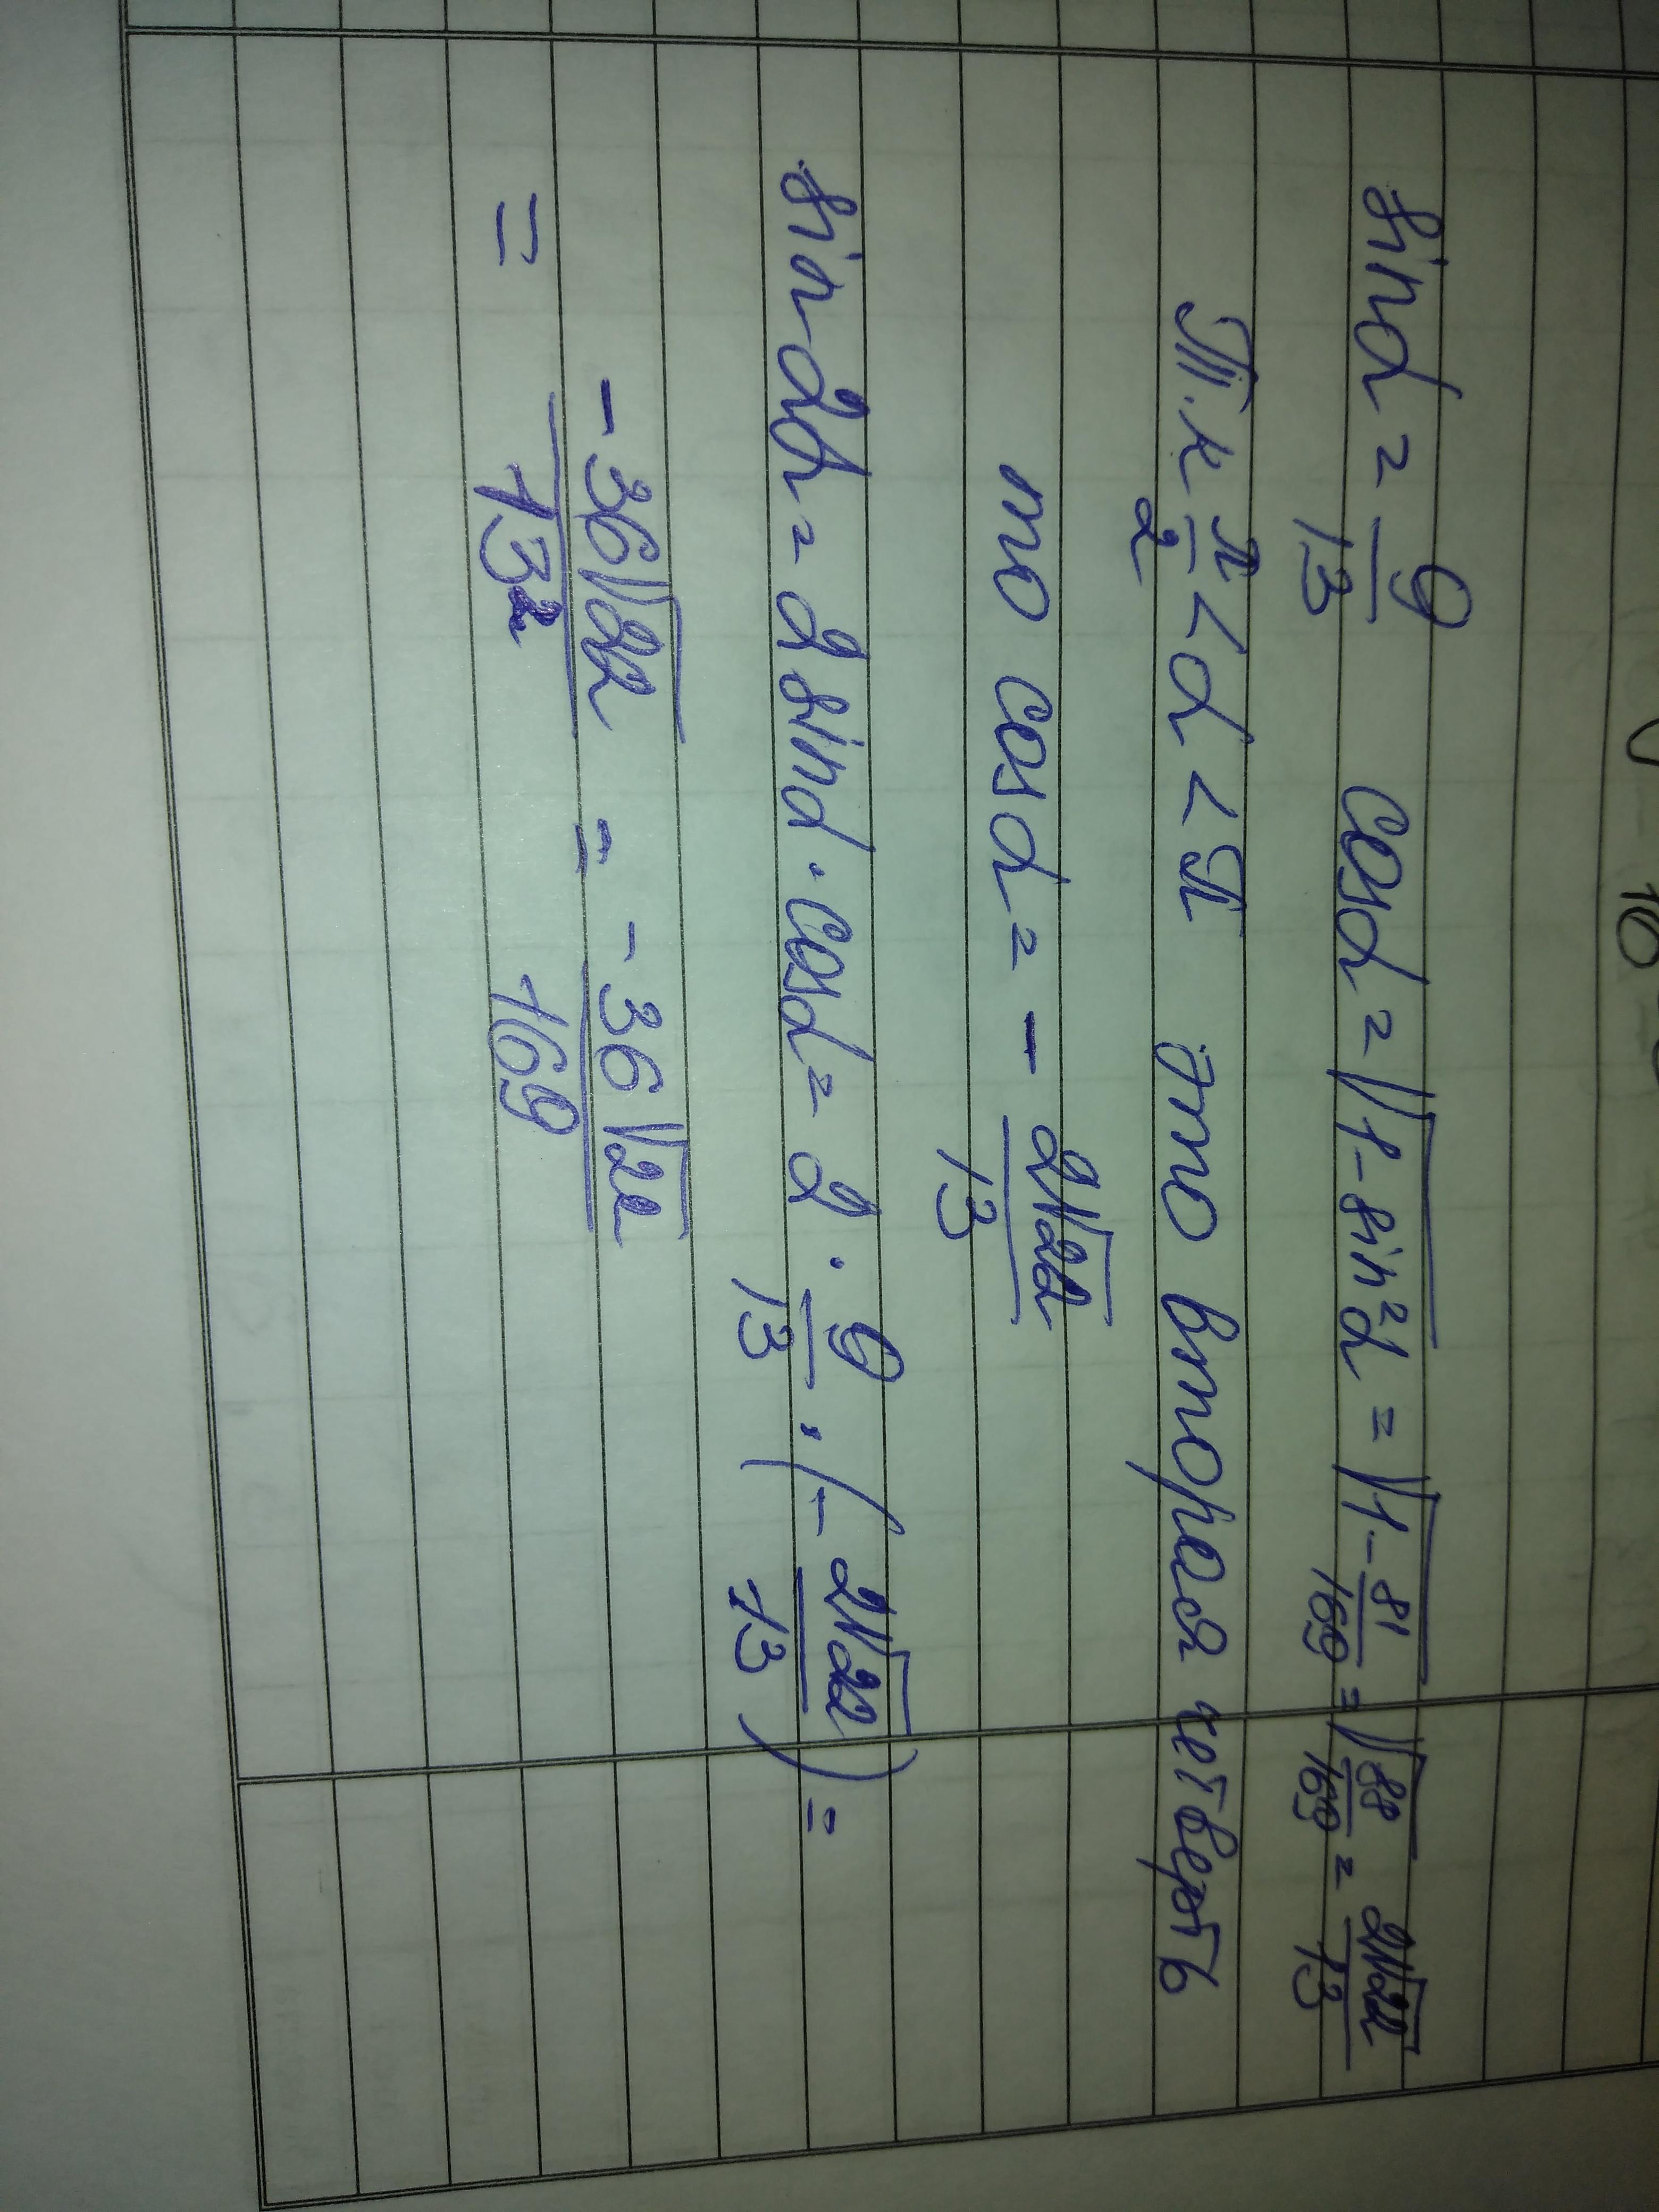 sinα = 9/13 cosα = √(1 - sin²α) = √(1 - 81/169) = √(88/169) = 2√22/13
Т.к π/2 < α < π это вторая четверть
то cosα = - 2√22/13
sin2α = 2 sinα · cosα = 2 · 9/13 · (- 2√22/13) =
= -36√22/13² = -36√22/169